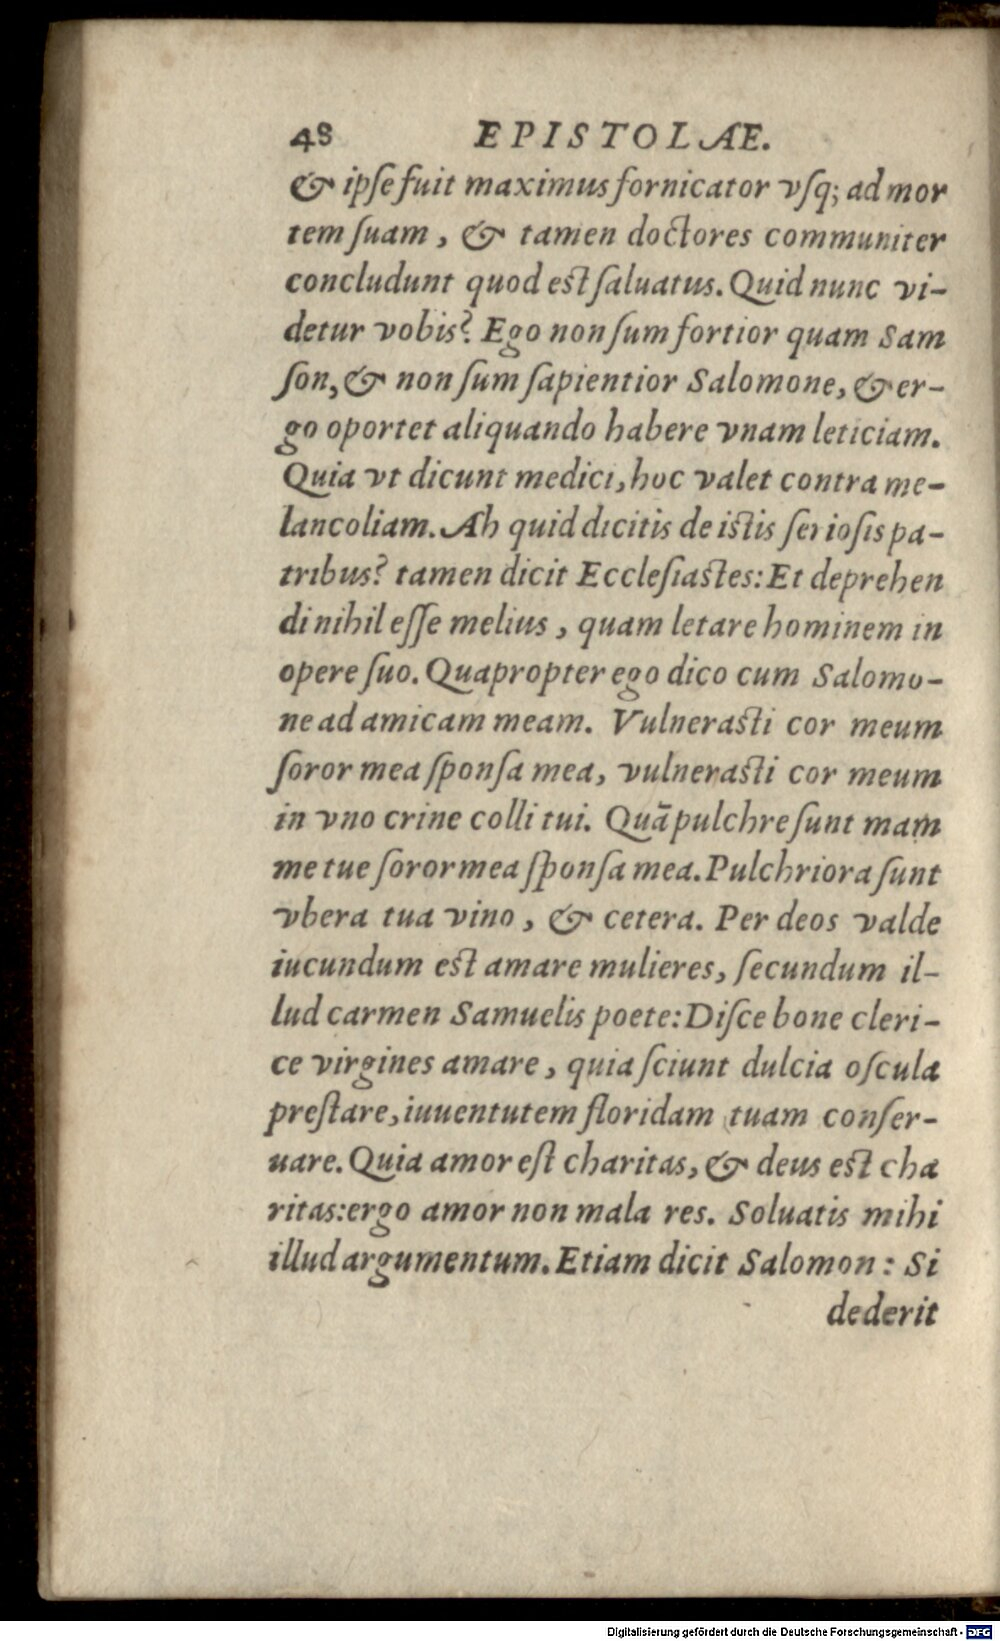 48 EPISTOLÆ.
& ipſe fuit maximus fornicator vſq; ad mor
tem ſuam, & tamen doctores communiter
concludunt quod eſt ſaluatus. Quid nunc vi-
detur vobis? Ego non ſum fortior quam Sam
ſon, & non ſum ſapientior Salomone, & er-
go oportet aliquando habere vnam leticiam.
Quia vt dicunt medici, hoc valet contra me-
lancoliam. Ah quid dicitis de iſtis ſerioſis pa-
tribus? tamen dicit Eccleſiaſtes: Et deprehen
di nihil eſſe melius, quam letare hominem in
opere ſuo. Quapropter ego dico cum Salomo-
ne ad amicam meam. Vulneraſti cor meum
ſoror mea ſponſa mea, vulneraſti cor meum
in vno crine colli tui. Quā pulchre ſunt mam
me tue ſoror mea ſponſa mea. Pulchriora ſunt
vbera tua vino, & cetera. Per deos valde
iucundum eſt amare mulieres, ſecundum il-
lud carmen Samuelis poete: Diſce bone cleri-
ce virgines amare, quia ſciunt dulcia oſcula
preſtare, iuuentutem floridam tuam conſer-
uare. Quia amor eſt charitas, & deus eſt cha
ritas: ergo amor non mala res. Soluatis mihi
illud argumentum. Etiam dicit Salomon: Si
dederit
Digitalisierung gefördert durch die Deutsche Forschungsgemeinschaft - DFG